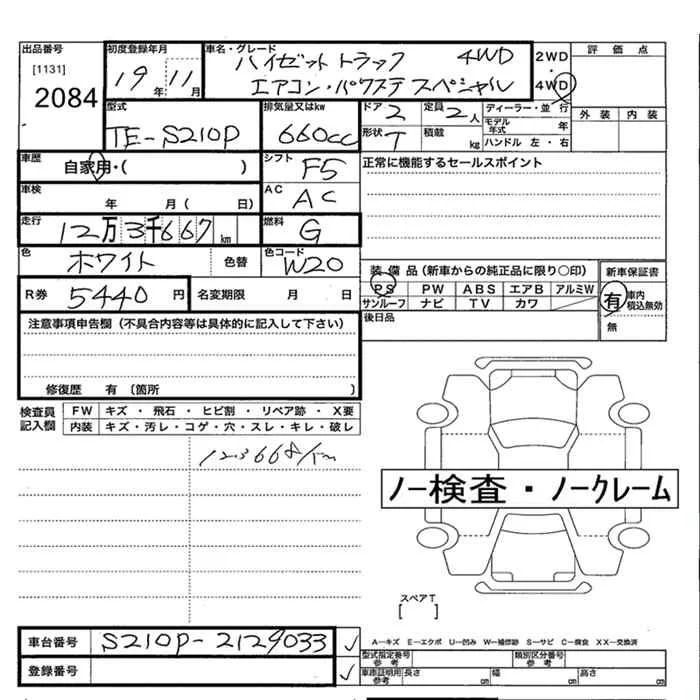 出品番号
[1131]
2084
初度登録年月
19年11月
車名・グレード
ハイゼット トラック 4WD
エアコン・パワステ スペシャル
2WD
・
4WD
評価点
外装 内装
型式
TE-S210P
排気量又はkw
660cc
ドア 2
定員 2人
形状 T
積載 kg
ディーラー・並行
モデル年式 年
ハンドル 左・右
車歴
自家用・( )
シフト
F5
正常に機能するセールスポイント
車検
年 月( 日)
AC
AC
走行
12万3千667km
燃料
G
色
ホワイト
色替
色コード
W20
R券 5440円
名変期限 月 日
装備品(新車からの純正品に限り○印)
PS PW ABS エアB アルミW
サンルーフ ナビ TV カワ
新車保証書
有 車内積込無効
無
後日品
注意事項申告欄(不具合内容等は具体的に記入して下さい)
修復歴 有〔箇所 〕
検査員記入欄
FW キズ・飛石・ヒビ割・リペア跡・X要
内装 キズ・汚レ・コゲ・穴・スレ・キレ・破レ
123668km
ノー検査・ノークレーム
スペアT
[ ]
車台番号 S210P-2129033 ✓
登録番号 ✓
A-キズ E-エクボ U-凹み W-補修跡 S-サビ C-腐食 XX-交換済
型式指定番号 参考
類別区分番号 参考
車庫証明用 参考
長さ cm 幅 cm 高さ cm